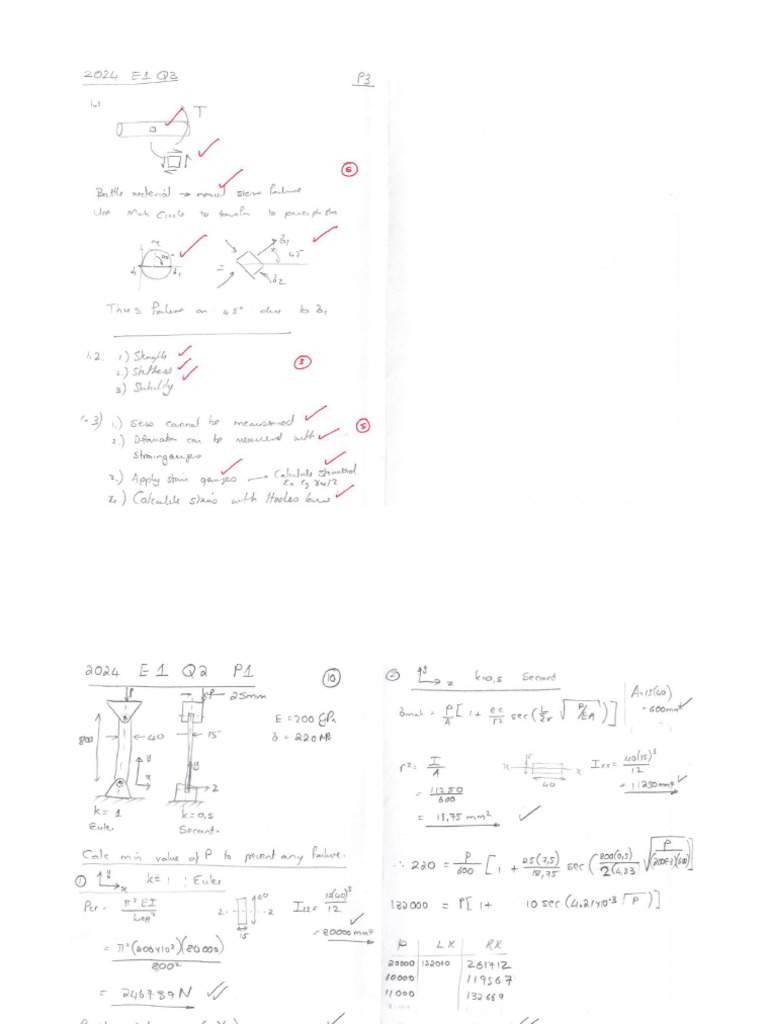 2024 E1 Q3
P3
1.1
T
6
Brittle material → normal stress failure
Use Mohr Circle to transfer to principal
90°
σ1
=
σ1
45°
σ2
Thus failure on 45° due to σ1
1.2 1) Strength
2.) Stiffness
3) Stability
3
1.3) 1.) Stress cannot be measured
2.) Deformation can be measured with
straingauges
5
3.) Apply strain gauges → Calculate
Ex Ey γxy/2
4.) Calculate strains with Hookes law
2024 E1 Q2 P1
10
P
P
25mm
E = 200 GPa
σ = 220 MPa
800
40
15
y
x
y
z
k = 1
k = 0,5
Euler
Secant.
Calc min value of P to prevent any failure.
1
y
x
k = 1 ; Euler
Pcr = π² EI / Leff²
z
40
z
15
Izz = 15(40)³ / 12
= 80000 mm⁴
= π²(200x10³)(80000) / 800²
= 246789 N
2
y
z
k=0,5 Secant
A=15(40)
= 600mm²
σmax = P/A [1 + ec/r² sec(L/2r √P/EA)]
r² = I/A
x
15
x
40
Ixx = 40(15)³ / 12
= 11250 mm⁴
= 11250 / 600
= 18,75 mm²
∴ 220 = P/600 [1 + 25(7,5)/18,75 sec(800(0,5)/2(4,33) √P/(200E3)(600)]
132000 = P[1+ 10 sec(4.21x10⁻³ √P)]
P LK RK
20000 132000 261712
10000 119567
11000 132669